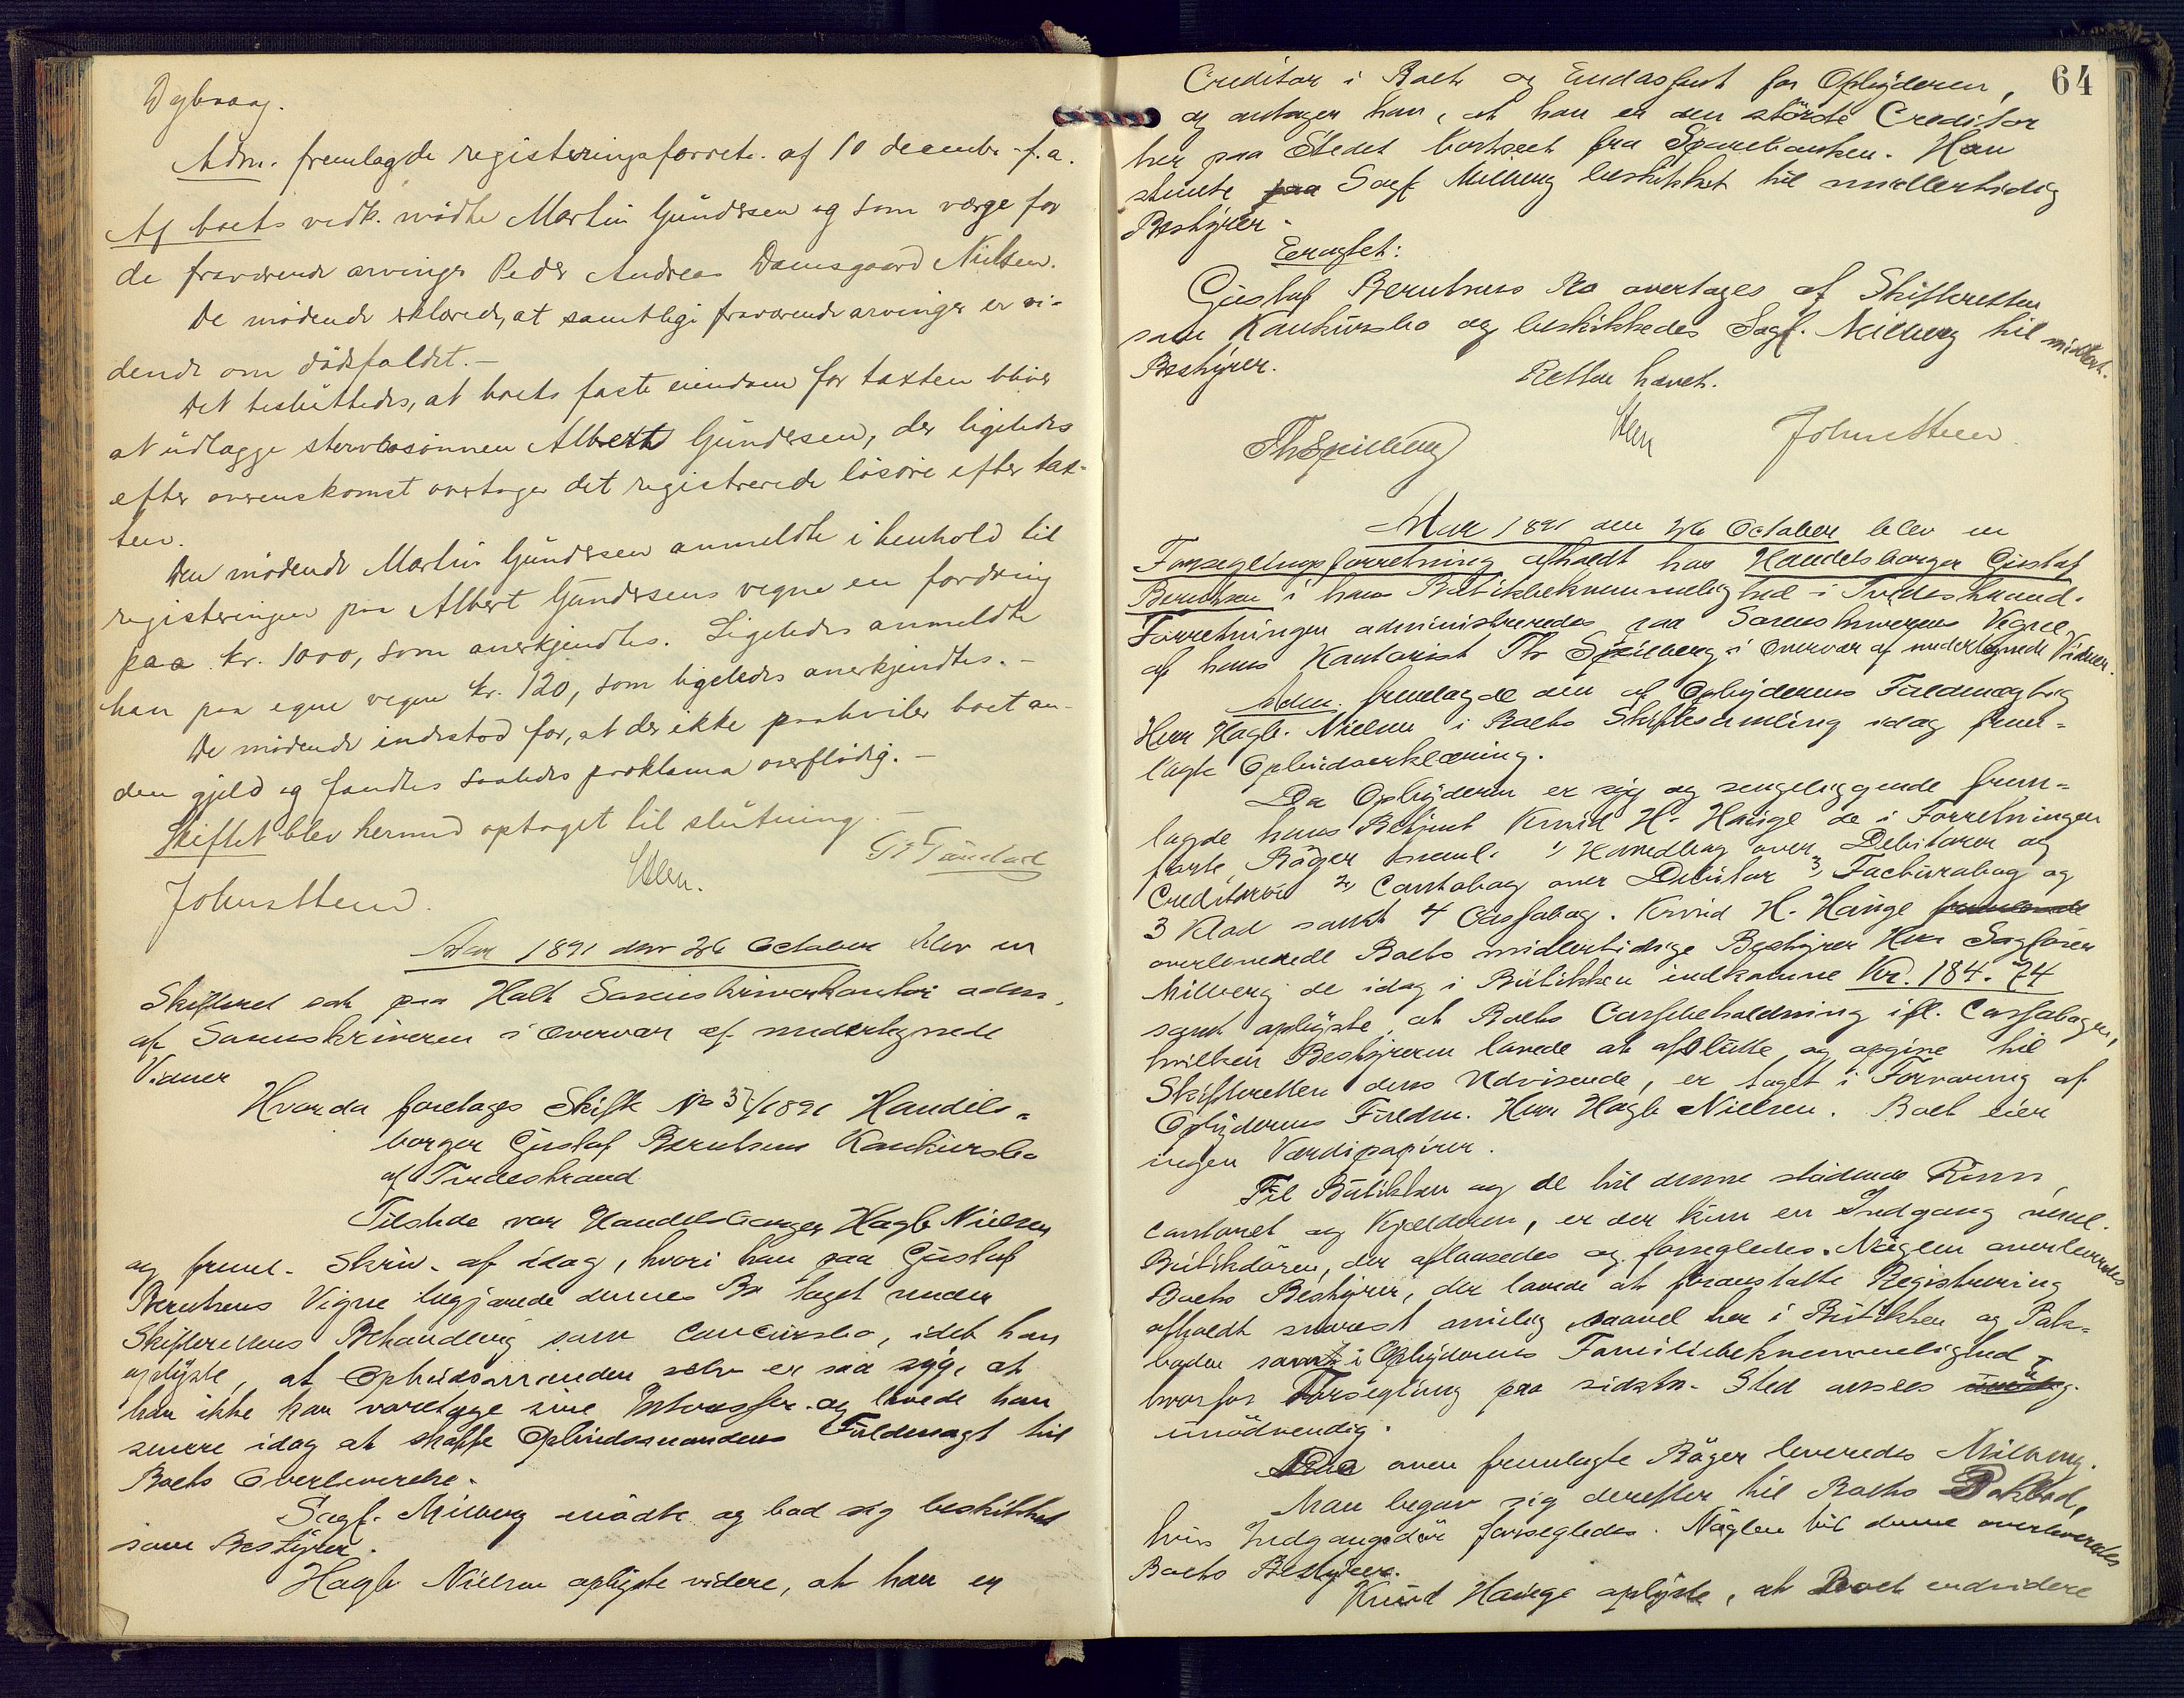 Dybvaag.
Adm. fremlagde registeringsforretn. af 10 decembr f.a.
Af boets vedk. mødte Martin Gundersen og som værge for
de fraværende arvinger Peder Andreas Damsgaard Nielsen.
De mødende erklærede, at samtlige fraværende arvinger er vi-
dende om dødsfaldet.-
Det besluttedes, at boets faste eiendom for taxten bliver
at udlægge stervbosønnen Albert Gundersen, der ligeledes
efter overenskomst overtager det registrerede løsøre efter tax-
ten.
Den mødende Martin Gundersen anmeldte i henhold til
registeringen paa Albert Gundersens vegne en fordring
paa kr. 1000, som anerkjendtes. Ligeledes anmeldte
han paa egne vegne kr. 120, som ligeledes anerkjendtes.-
De mødende indestod for, at der ikke paahviler boet an-
den gjeld og fandtes saaledes proklama overflødig.-
Skiftet blev hermed optaget til slutning.-
John Steen.
Aar 1891 den 26 October blev en
Skifteret sat paa Holt Sorenskriverkontor adm.
af Sorenskriveren i Overvær af undertegnede
Vidner
Hvorda foretages Skifte No 37/1891 Handels-
borger Gustaf Berntsens Konkursbo
af Tvedestrand
Tilstede var Handelsborger Hagb. Nielsen
og freml. Skriv. af idag, hvori han paa Gustaf
Berntsens Vegne begjærede dennes Bo taget under
Skifterettens Behandling som Concursbo, idet han
oplyste, at Opbudsmanden selv er saa syg, at
han ikke kan varetage sine Interesser og lovede han
senere idag at skaffe Opbudsmandens Fuldmagt til
Boets Overleverelse.
Sagf. Milberg mødte og bad sig beskikket
som Bestyrer.
Hagb. Nielsen oplyste videre, at han er
64
Creditor i Boet og for Opbyderen,
og antager han, at han er den største Creditor
her paa Stedet bortseet fra Sparebanken. Han
stemte paa Sagf. Milberg beskikket til midlertidig
Bestyrer.
Eragtet:
Gustaf Berntsens Bo overtages af Skifteretten
som Konkursbo og beskikkedes Sagf. Milberg til midlert.
Bestyrer.
Retten hævet.
Th Spilling
John Steen
Aar 1891 den 26 October blev en
Forseglingsforretning afholdt hos Handelsborger Gustaf
Berntsen i hans Butikbekvemmelighed i Tvedestrand.
Forretningen administreredes paa Sorenskriverens Vegne
af hans Kontorist Th Spilberg i Overvær af undertegnede Vidner.
Adm. fremlagde den af Opbyderens Fuldmægtig
Herr Hagb. Nielsen i Boets Skiftesamling idag frem-
lagte Opbudserklæring.
Da Opbyderen er syg og sengeliggende frem-
lagde hans Betjent Knud H. Hauge de i Forretningen
førte Bøger nemlig 1, Hovedbog over Debitorer og
Creditorer 2, Contobog over Debitor 3, Facturabog og
3 Klad samt 4 Cassabog. Knud H. Hauge
overleverede Boets midlertidige Bestyrer Herr Sagfører
Milberg de idag i Butikken indkomne Kr. 184.74
samt oplyste, at Boets Cassebeholdning ifl. Cassabogen,
hvilken Bestyreren lovede at afslutte, og opgive til
Skifteretten dens Udvisende, er taget i Forvaring af
Opbyderens Fuldm. Herr Hagb Nielsen. Boet eier
ingen Værdipapirer.
Til Butikken og de til denne stødende Rum,
Contoret og Kjælderen, er der kun en Indgang nemlig
Butikdøren, der aflaasedes og forsegledes. Nøglen overleveredes
Boets Bestyrer, der lovede at foranstalte Registrering
afholdt snarest mulig, saavel her i Butikken og Pak-
boden samt i Opbyderens Familiebekvemmelighed
hvorfor Forsegling paa sidstn. Sted ansees
unødvendig.
De oven fremlagte Bøger leveredes Milberg.
Man begav sig derefter til Boets Pakbod,
hvis Indgangsdør forsegledes. Nøglen til denne overleveredes
Boets Bestyrer.
Knud Hauge oplyste, at Boet endvidere